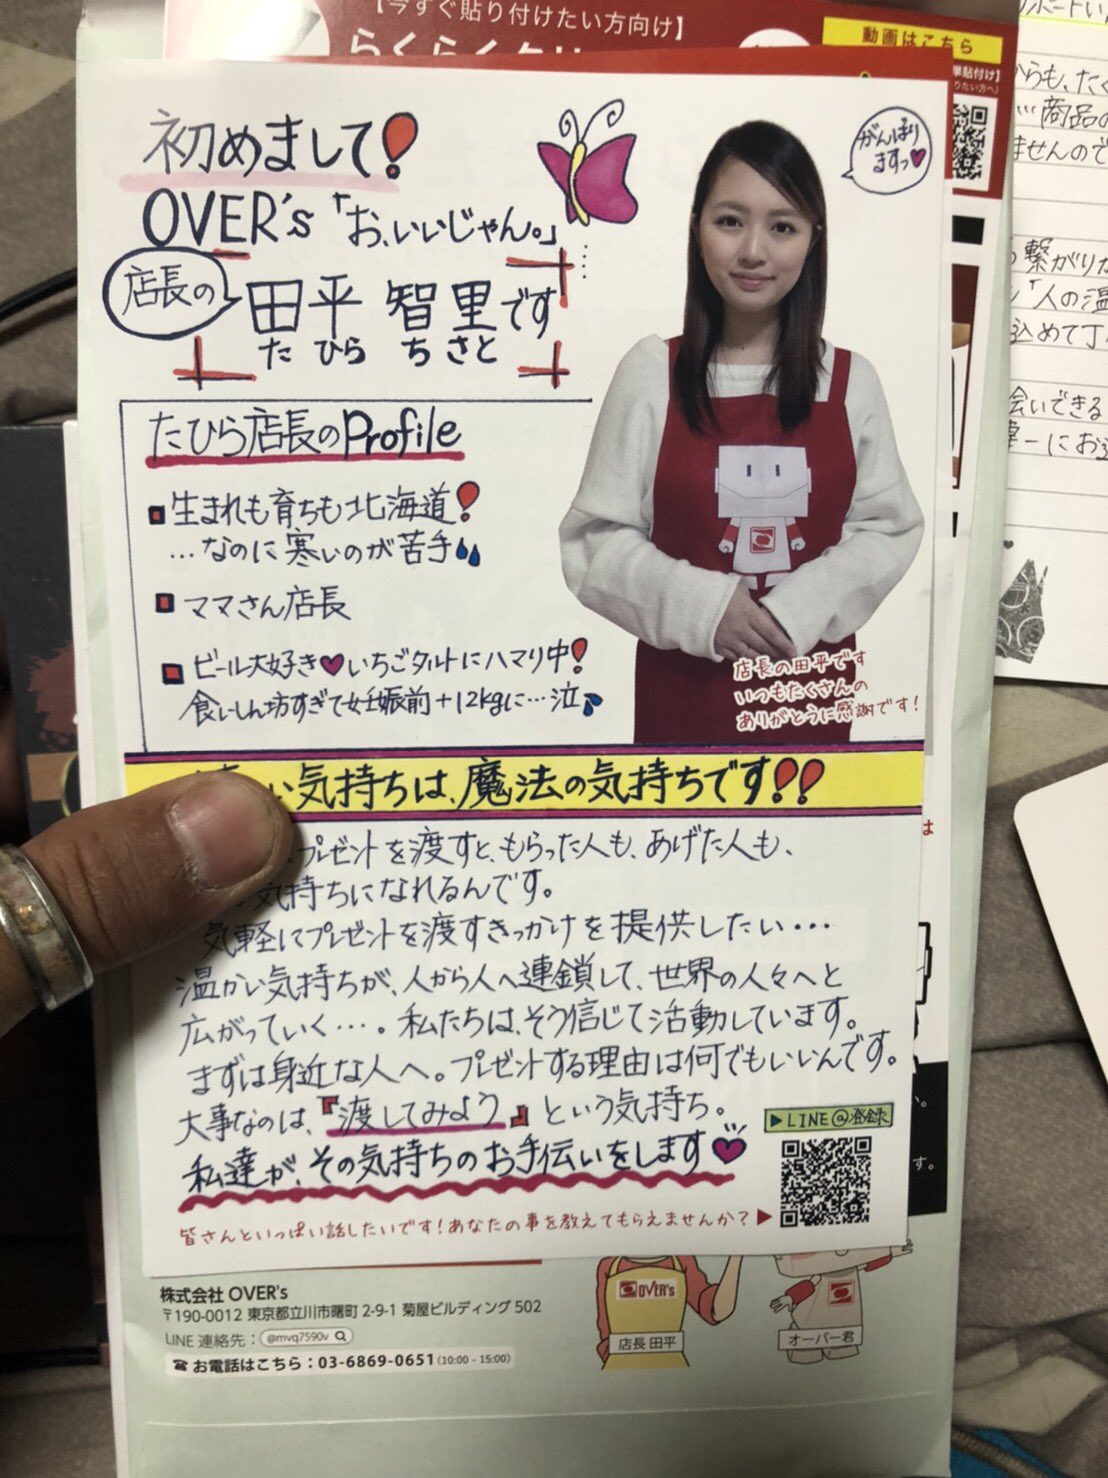 【今すぐ貼り付けたい方向け】
らくらく
動画はこちら
初めまして!
OVER's「お、いいじゃん。」
店長の
田平 智里です
た ひら ち さと
がんばり
ますっ♥
たひら店長のProfile
生まれも育ちも北海道!
…なのに寒いのが苦手
ママさん店長
ビール大好き♥いちごタルトにハマり中!
食いしん坊すぎて妊娠前+12kgに…泣
店長の田平です
いつもたくさんの
ありがとうに感謝です!
い気持ちは、魔法の気持ちです!!
プレゼントを渡すと、もらった人も、あげた人も、
気持ちになれるんです。
気軽にプレゼントを渡すきっかけを提供したい…
温かい気持ちが、人から人へ連鎖して、世界の人々へと
広がっていく…。私たちは、そう信じて活動しています。
まずは身近な人へ。プレゼントする理由は何でもいいんです。
大事なのは、『渡してみよう』という気持ち。
私達が、その気持ちのお手伝いをします♥
▶LINE@登録
皆さんといっぱい話したいです!あなたの事を教えてもらえませんか?▶
株式会社 OVER's
〒190-0012 東京都立川市曙町 2-9-1 菊屋ビルディング 502
LINE 連絡先: @mvq7590v
☎お電話はこちら:03-6869-0651(10:00 - 15:00)
OVER's
店長 田平
オーバー君
からも、たく
商品の
ませんので
繋がりが
「人の温
込めて丁
会いできる